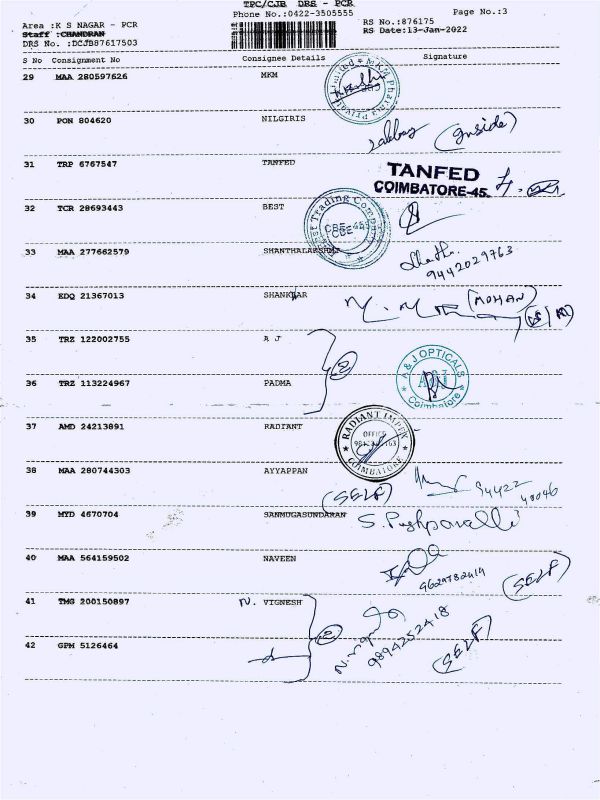 TPC/CJB DRS - PCR
Phone No.:0422-3505555 Page No.:3
Area :K S NAGAR - PCR RS No.:876175
Staff :CHANDRAN RS Date:13-Jan-2022
DRS No. :DCJB87617503
S No Consignment No Consignee Details Signature
29 MAA 280597626 MKM
30 PON 804620 NILGIRIS
(Inside)
31 TRP 6767547 TANFED
TANFED
COIMBATORE-45.
32 TCR 28693443 BEST
Best Trading Company
CBE
33 MAA 277662579 SHANTHALAKSHMI
9442029763
34 EDQ 21367013 SHANKAR
(MOHAN)
35 TRZ 122002755 A J
2
A & J OPTICALS
A&J
Coimbatore
36 TRZ 113224967 PADMA
37 AMD 24213891 RADIANT
RADIANT IMPEX
OFFICE
COIMBATORE
38 MAA 280744303 AYYAPPAN
(SELF) 94422
39 MYD 4670704 SANMUGASUNDARAN
S. Pushpavalli
40 MAA 564159502 NAVEEN
(SELF)
41 TMG 200150897 N. VIGNESH
2
9894252418
(SELF)
42 GPM 5126464